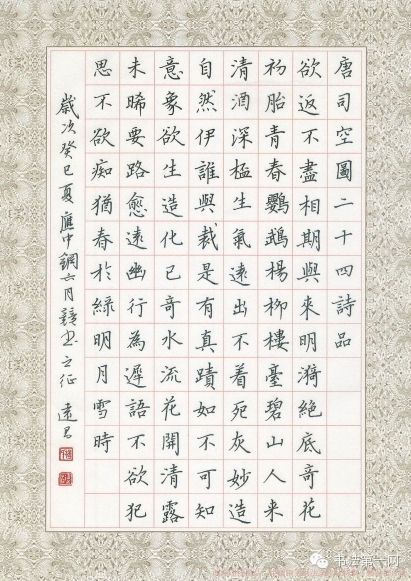 唐司空圖二十四詩品
欲返不盡相期與來明漪絕底奇花
初胎青春鸚鵡楊柳樓臺碧山人來
清酒深生氣遠出不着死灰妙造
自然伊誰與裁是有真蹟如不可知
意象欲生造化已奇水流花開清露
未晞要路愈遠幽行為遲語不欲犯
思不欲痴猶春於綠明月雪時
歲次癸巳夏應中鋼六月競书之征
书法第一网